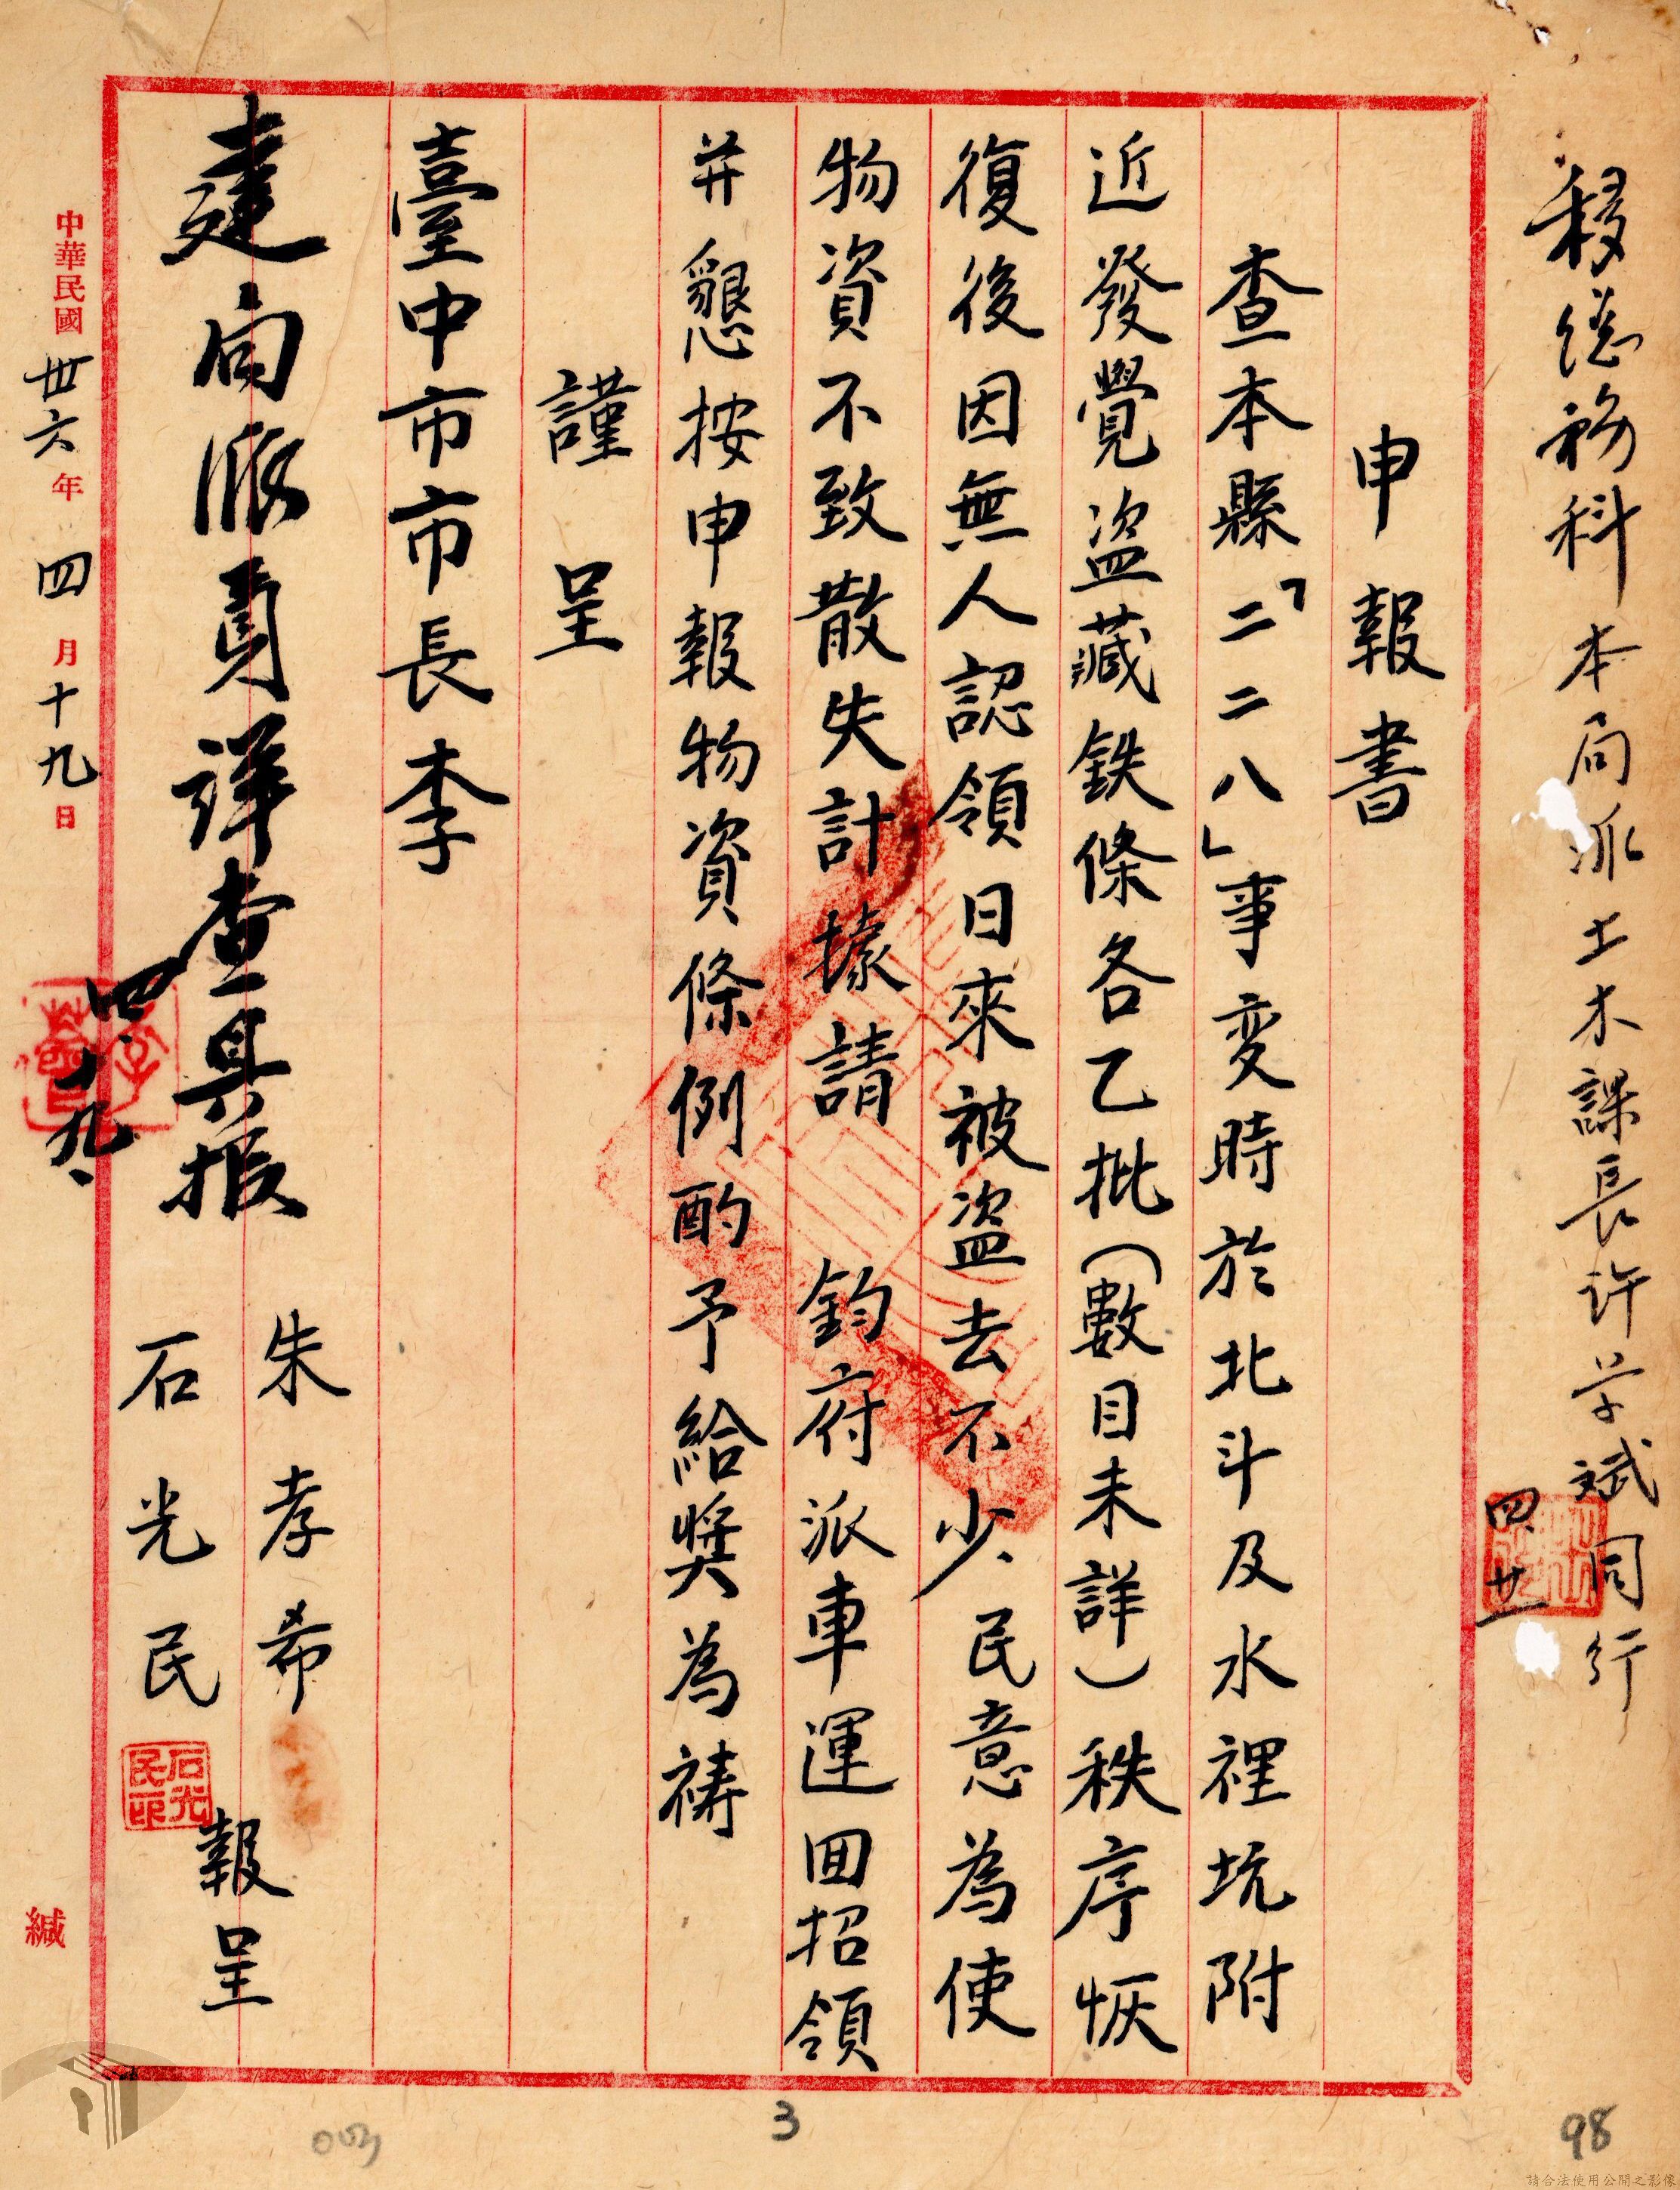 移總務科 本局派土木課長许学斌同行
四、廿一
申報書
查本縣「二二八」事変時於北斗及水裡坑附
近發覺盜藏鉄條各乙批(數目未詳)秩序恢
復後因無人認領日來被盜去不少、民意為使
物資不致散失計據請 鈞府派車運囬招領
并懇按申報物資條例酌予給獎為禱
謹 呈
臺中市市長李
建局派員詳查具报
四、十九、
朱孝希
石光民
報呈
石光民印
中華民國卅六年四月十九日
緘
3
98
請合法使用公開之影像